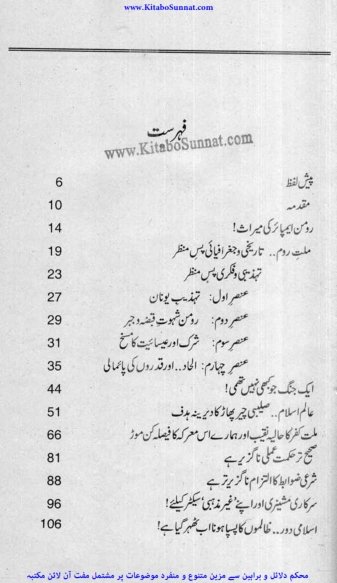 www.KitaboSunnat.com
فہرست
www.KitaboSunnat.com
پیش لفظ 6
مقدمہ 10
رومن ایمپائر کی میراث! 14
ملتِ روم.. تاریخی و جغرافیائی پس منظر 19
تہذیبی و فکری پس منظر 23
عنصرِ اول: تہذیبِ یونان 27
عنصرِ دوم: رومن شہوتِ قبضہ و جبر 29
عنصرِ سوم: شرک اور عیسائیت کا مسخ 31
عنصرِ چہارم: الحاد.. اور قدروں کی پائمالی 35
ایک جنگ جو کبھی نہیں تھمی! 44
عالمِ اسلام.. صلیبی چیر پھاڑ کا دیرینہ ہدف 51
ملتِ کفر کا حالیہ نقیب اور ہمارے اس معرکہ کا فیصلہ کن موڑ 66
صحیح تر حکمت عملی ناگزیر ہے 81
شرعی ضوابط کا التزام ناگزیر تر ہے 88
سرکاری مشینری اور اپنے ’غیر مذہبی‘ سیکٹر کیلئے! 96
اسلامی دور.. ظالموں کا پسپا ہونا اب ٹھہر گیا ہے! 106
محکم دلائل و براہین سے مزین متنوع و منفرد موضوعات پر مشتمل مفت آن لائن مکتبہ